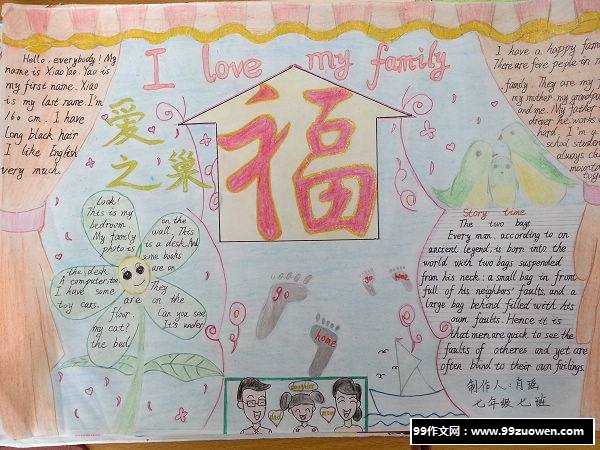 I love my family
Hello, everybody! My
name is Xiao Yao. Yao is
my first name. Xiao
is my last name. I'm
160 cm. I have
long black hair
I like English
very much.
爱
之巢
福
I have a happy fam
There are five peple in m
family. They are my
my mother my grandpa
and me. My father
drover he works v
hard. I'm a
sehool student
always cl
mountai
Look!
This is my
bedroom.
My family
photo is
on the
wall. This
is a desk. And
some books
are on
the desk.
A computer, too.
I have some
toy cars.
They
are on the
flour.
Can you see
my cat? It's under
the bed.
go
home
go
Story time
The two bags
Every man, according to an
ancient legend, is born into the
world with two bags suspended
from his neck: a small bag in front
full of his neighburs' faults, and a
large bag behind filled with his
own faults. Hence it is
that men are quick to see the
faults of otheres and yet are
often blind to their own failings.
制作人:肖瑶
七年级七班
daughter
dad
mom
99作文网:www.99zuowen.com